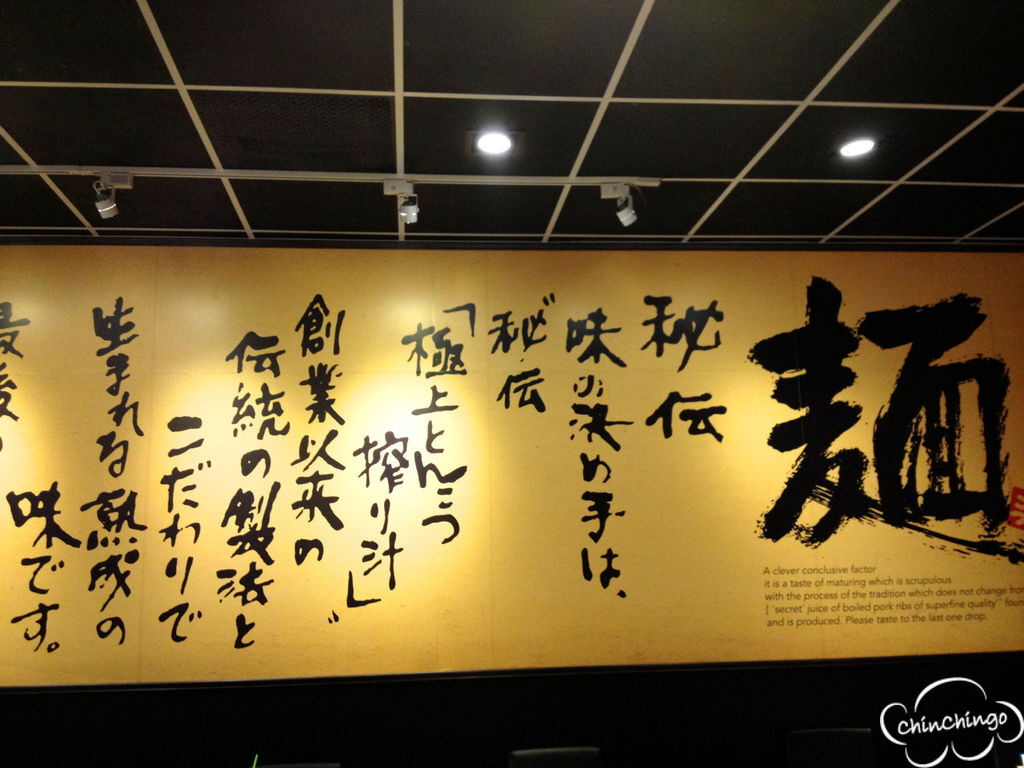 麺
秘伝
味の決め手は、
〝秘伝
「極上とんこつ
搾り汁」〟
創業以来の
伝統の製法と
こだわりで
生まれる熟成の
最後の
味です。
A clever conclusive factor
it is a taste of maturing which is scrupulous
with the process of the tradition which does not change from
[ "secret' juice of boiled pork ribs of superfine quality"
and is produced. Please taste to the last one drop.
chinchingo